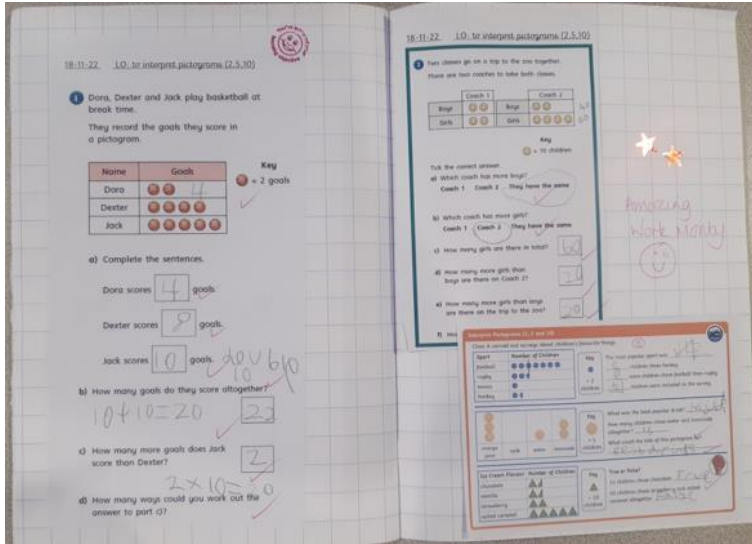 18-11-22 LO: to interpret pictograms (2,5,10)
1 Dora, Dexter and Jack play basketball at
break time.
They record the goals they score in
a pictogram.
Name Goals
Dora 4
Dexter
Jack
Key
= 2 goals
a) Complete the sentences.
Dora scores 4 goals.
Dexter scores 8 goals.
Jack scores 10 goals.
double
10
b) How many goals do they score altogether?
10+10=20
22
c) How many more goals does Jack
score than Dexter?
2
2x10=20
d) How many ways could you work out the
answer to part c)?
18-11-22 LO: to interpret pictograms (2,5,10)
2 Two classes go on a trip to the zoo together.
There are two coaches to take both classes.
Coach 1 Coach 2
Boys Boys 40
Girls Girls 60
Key
= 10 children
Tick the correct answer.
a) Which coach has more boys?
Coach 1 Coach 2 They have the same
b) Which coach has more girls?
Coach 1 Coach 2 They have the same
c) How many girls are there in total? 60
d) How many more girls than
boys are there on Coach 2?
e) How many more girls than boys
are there on the trip to the zoo? 20
f)
Amazing
Work Monty
Interpret Pictograms (2, 5 and 10)
Class 4 carried out surveys about children's favourite things.
Sport Number of Children
football
rugby
tennis
hockey
Key
= 2
children
The most popular sport was
children chose hockey.
more children chose football than rugby.
children were included in the survey.
orange
juice
milk
water
lemonade
Key
= 5
children
What was the least popular drink?
How many children chose water and lemonade
altogether?
What could the title of this pictogram be?
Ice Cream Flavour Number of Children
chocolate
vanilla
strawberry
salted caramel
Key
= 10
children
True or False?
15 children chose chocolate.